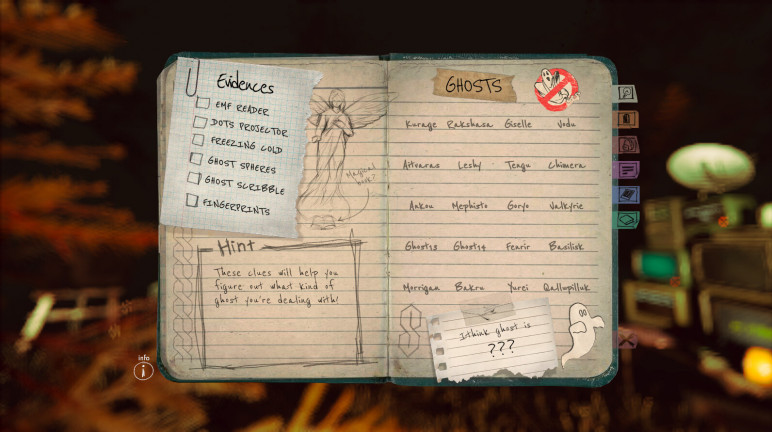 Evidences
EMF READER
DOTS PROJECTOR
FREEZING COLD
GHOST SPHERES
GHOST SCRIBBLE
FINGERPRINTS
Magical book?
Hint
These clues will help you
figure out what kind of
ghost you're dealing with!
info
GHOSTS
Kurage Rakshasa Giselle Vodu
Aitvaras Leshy Tengu Chimera
Ankou Mephisto Goryo Valkyrie
Ghost13 Ghost14 Fenrir Basilisk
Morrigan Bakru Yurei Qallupilluk
I think ghost is
???